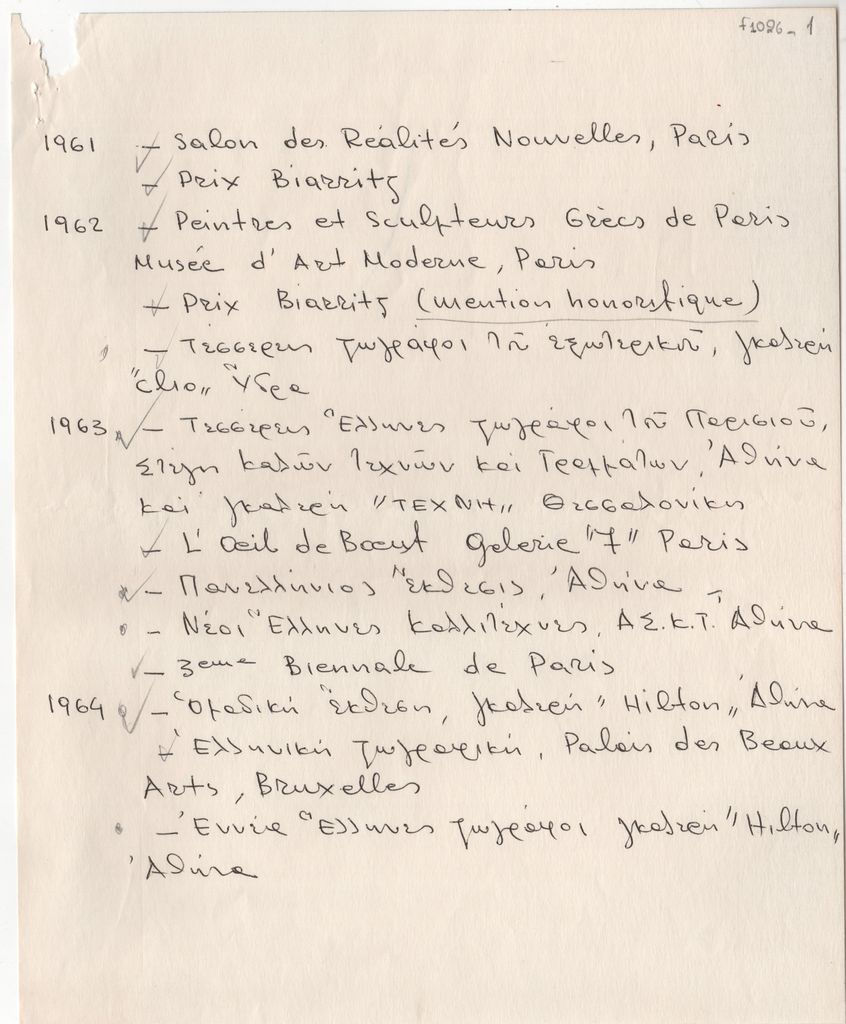 f1096_ 1
1961 - Salon des Réalités Nouvelles, Paris
- Prix Biarritz
1962 - Peintres et Sculpteurs Grècs de Paris
Musée d'Art Moderne, Paris
- Prix Biarritz (mention honorifique)
- Τέσσερεις ζωγράφοι τοῦ ἐξωτερικοῦ, γκαλερή
"Clio" Ὕδρα
1963 - Τέσσερεις Ἕλληνες ζωγράφοι τοῦ Παρισιοῦ,
Στέγη Καλῶν Τεχνῶν καί Γραμμάτων, Ἀθήνα
καί γκαλερή "ΤΕΧΝΗ" Θεσσαλονίκης
- L'Oeil de Boeuf Galerie "7" Paris
- Πανελλήνιος Ἔκθεσις, Ἀθήνα
- Νέοι Ἕλληνες Καλλιτέχνες, Α.Σ.Κ.Τ. Ἀθήνα
- 3eme Biennale de Paris
1964 - Ὁμαδική Ἔκθεση, γκαλερή "Hilton" Ἀθήνα
- Ἑλληνική ζωγραφική, Palais des Beaux
Arts, Bruxelles
- Ἐννέα Ἕλληνες ζωγράφοι γκαλερή "Hilton"
Ἀθήνα